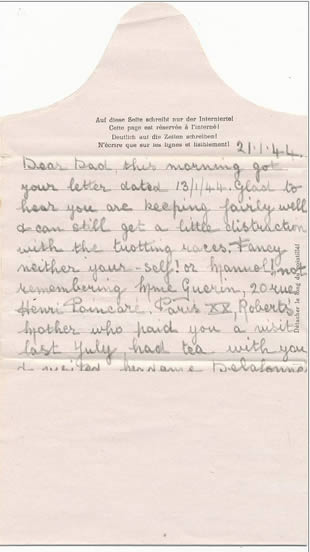 Auf diese Seite schreibt nur der Internierte!
Cette page est réservée à l'interné!
Deutlich auf die Zeilen schreiben!
N'écrire que sur les lignes et lisiblement!
21.1.44.
Dear Dad, this morning got
your letter dated 13/1/44. Glad to
hear you are keeping fairly well
& can still get a little distraction
with the trotting races. Fancy
neither your-self! or Manuel! not
remembering Mme Guerin, 20 rue
Henri Poincaré. Paris XX, Roberts'
Mother who paid you a visit
last July had tea with you
& visited Madame
Détacher le long du pointillé!